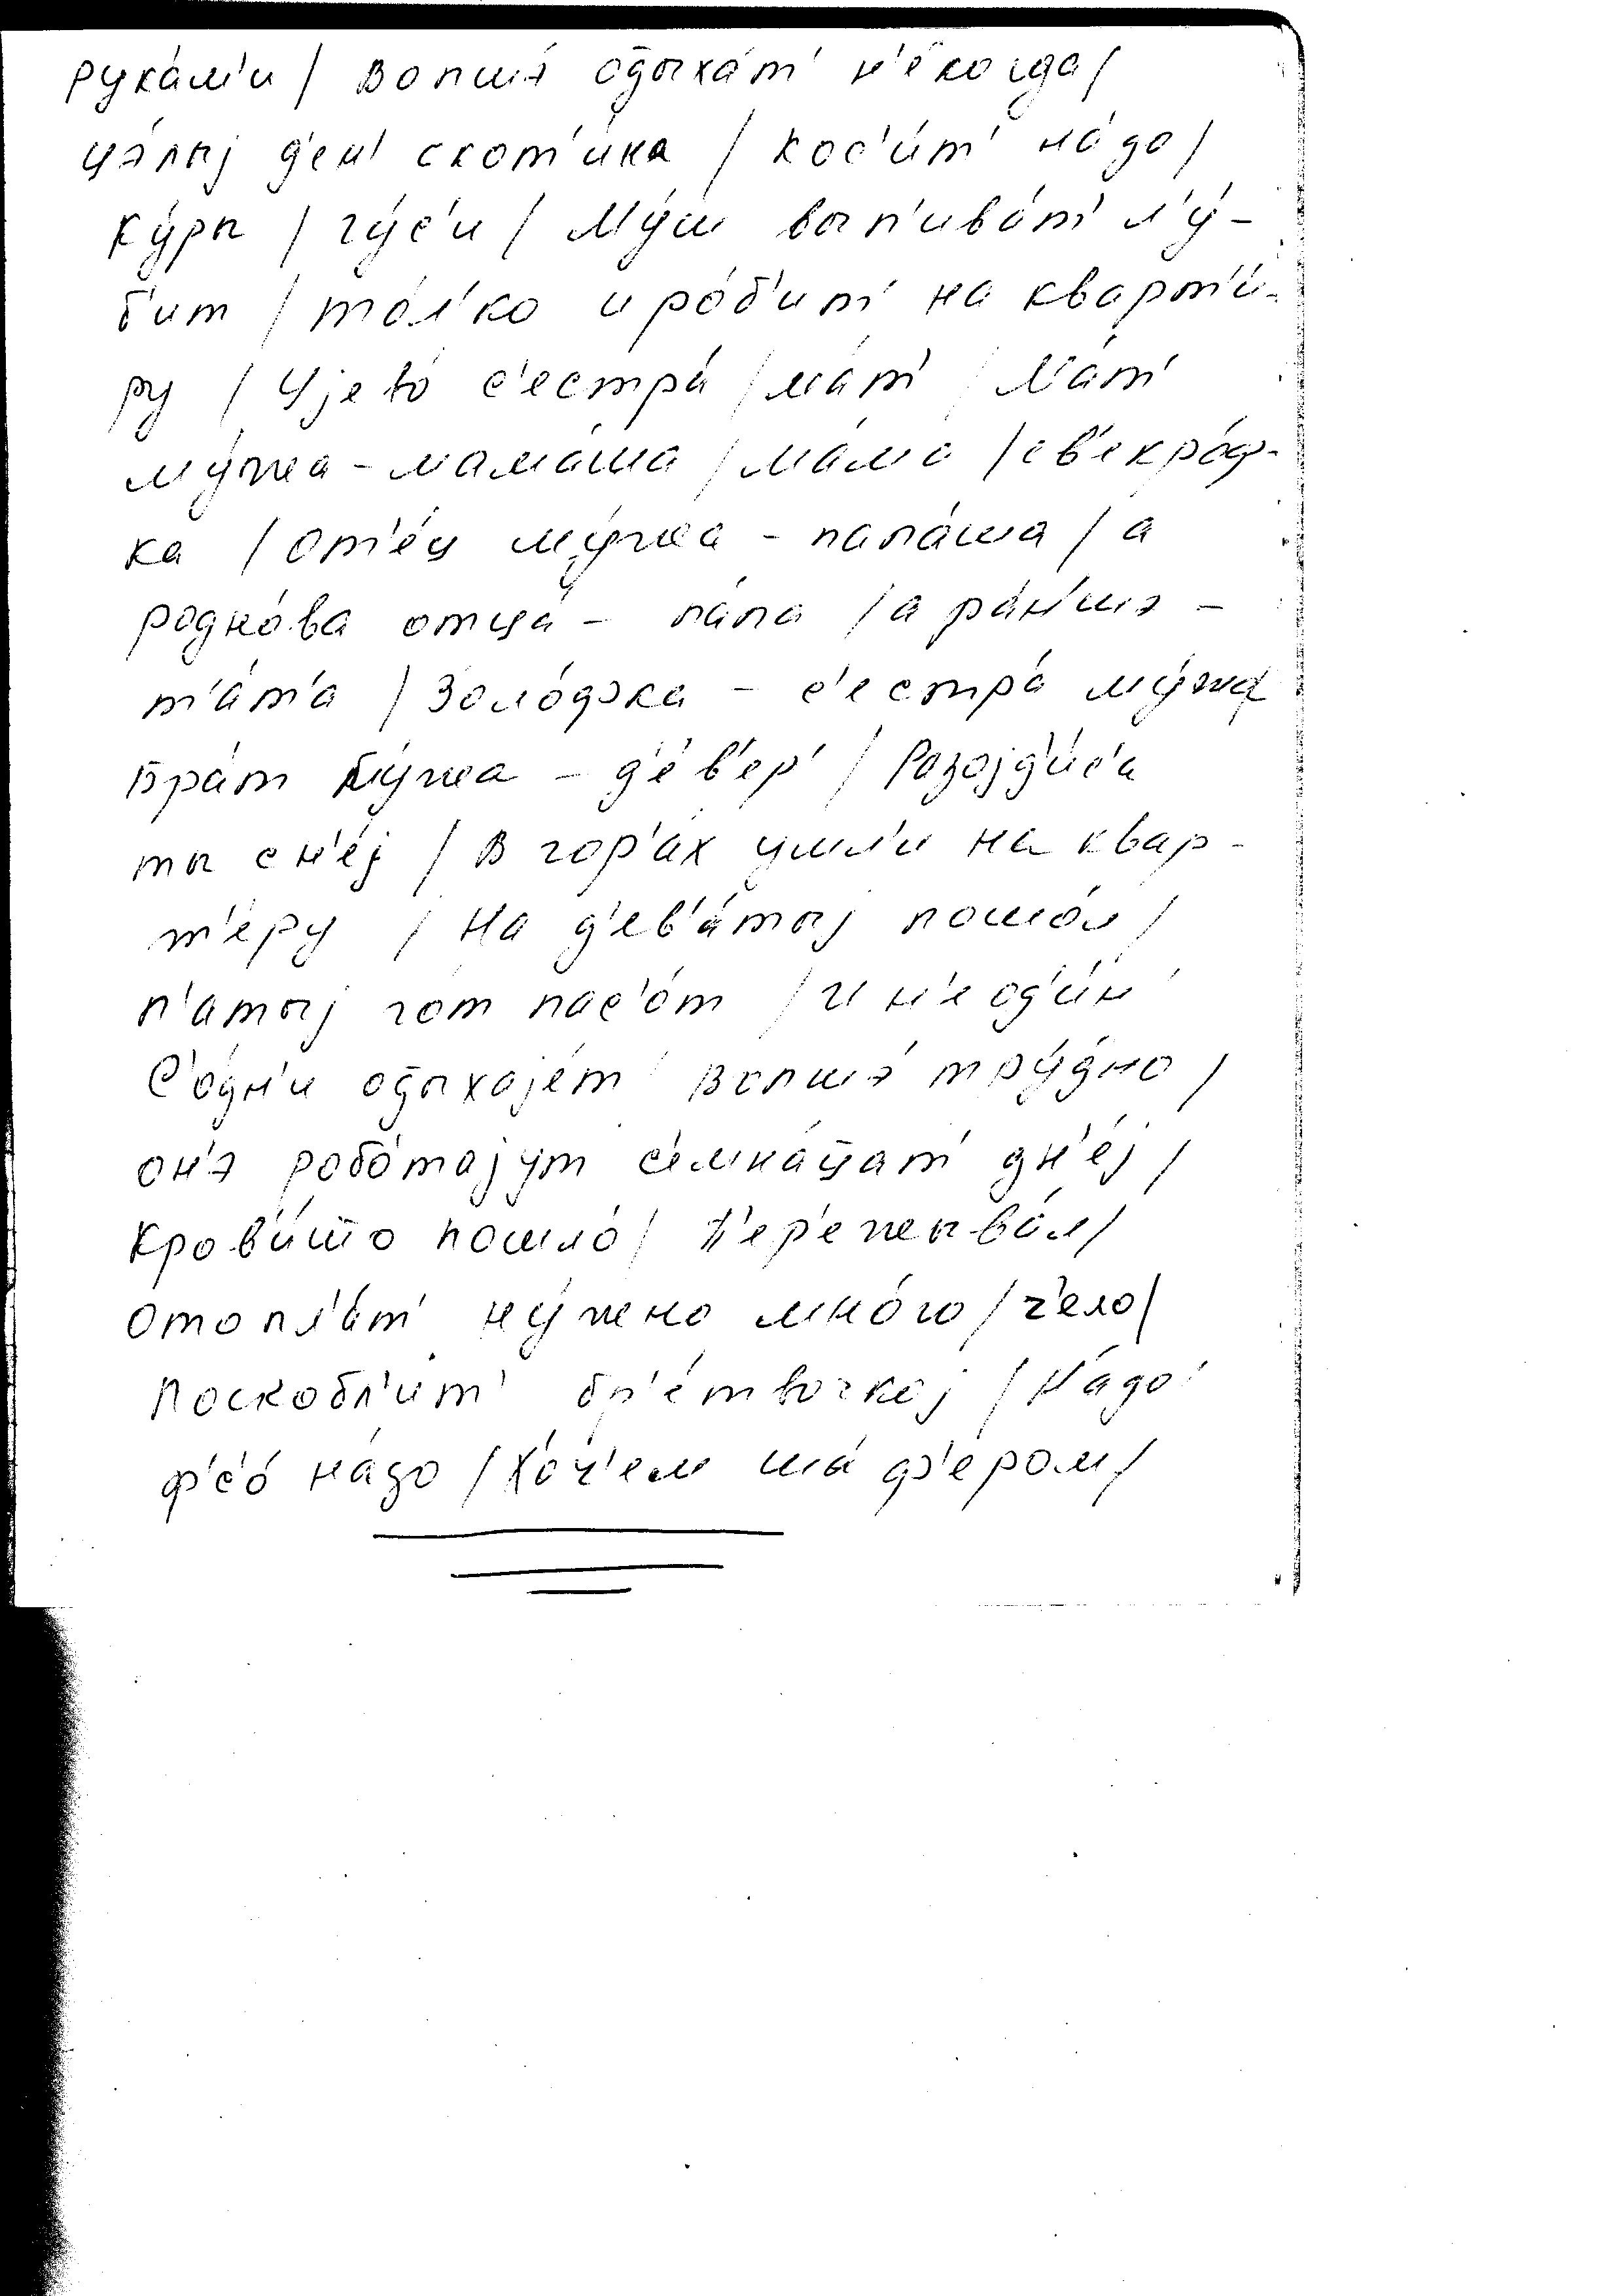 рука́м'и / вопшэ́ од̅ыха́т' н'е́когда /
цэ́лыј д'ен' скот'и́на / кос'и́т' на́до /
ку́ры / гу́с'и / Му́ш вып'ива́т' л'у́-
б'ит / то́л'ко и ро́б'ит' на кварт'и́-
ру / Ујево́ с'естра́ / ма́т' / Ма́т'
му́жа - мама́ша / ма́ма / св'екро́ф-
ка / От'е́ц му́жа - папа́ша / а
родно́ва отца́ - па́па / а ра́н'шэ -
т'а́т'а / Золо́фка - с'естра́ му́жа
Бра́т му́жа - д'е́в'ер' / Разојд'и́с'а
ты с н'е́ј / В гор'а́х ушл'и́ на квар-
т'е́ру / На д'ев'а́тыј пошо́л /
п'а́тыј го́т пас'о́т / И н'е од'и́н
С'о́дн'и од̅ыхаје́т вопшэ́ тру́дно /
он'э́ робо́тајут с'емна́ц̅ат' дн'е́ј /
Кров'и́ш̅о пошло́ / П'ер'ежыва́л /
Отопл'а́т' ну́жно мно́го / ч'ело /
Поскобл'и́т' бр'е́твочкој / На́до
ф'с'о́ на́до / Хо́ч'ем ша́ф'ером /